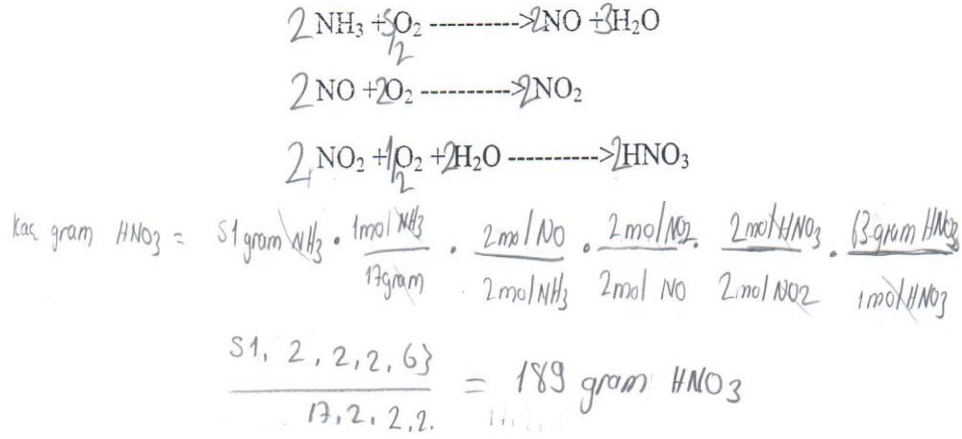 2 NH₃ + 5/2 O₂ ----------> 2NO + 3H₂O
2 NO + 2O₂ -----------> 2NO₂
2 NO₂ + 1/2 O₂ + 2H₂O ----------> 2HNO₃
Kaç gram HNO₃ = 51 gram NH₃ . 1mol NH₃ / 17gram . 2mol NO / 2mol NH₃ . 2mol NO₂ / 2mol NO . 2mol HNO₃ / 2mol NO2 . 63 gram HNO₃ / 1mol HNO₃
51, 2, 2, 2, 63 / 17, 2, 2, 2. = 189 gram HNO₃